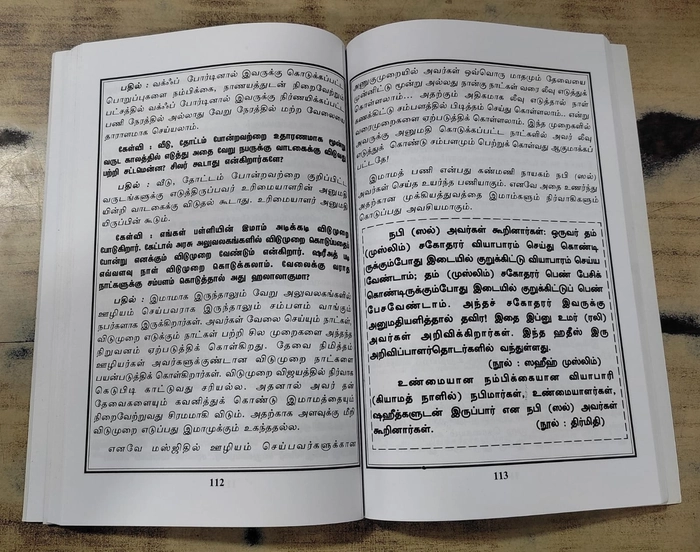 பதில் : வக்ஃப் போர்டினால் இவருக்கு கொடுக்கப்பட்ட
பொறுப்புகளை நம்பிக்கை, நாணயத்துடன் நிறைவேற்றும்
பட்சத்தில் வக்ஃப் போர்டினால் இவருக்கு நிர்ணயிக்கப்பட்ட
பணி நேரத்தில் அல்லாது வேறு நேரத்தில் மற்ற வேலையை
தாராளமாக செய்யலாம்.
கேள்வி : வீடு, தோட்டம் போன்றவற்றை உதாரணமாக மூன்று
வருட காலத்தில் எடுத்து அதை வேறு நபருக்கு வாடகைக்கு விடுவது
பற்றி சட்டமென்ன? சிலர் கூடாது என்கிறார்களே?
பதில் : வீடு, தோட்டம் போன்றவற்றை குறிப்பிட்ட
வருடங்களுக்கு எடுத்திருப்பவர் உரிமையாளரின் அனுமதி
யின்றி வாடகைக்கு விடுதல் கூடாது. உரிமையாளர் அனுமதி
யிருப்பின் கூடும்.
கேள்வி : எங்கள் பள்ளியின் இமாம் அடிக்கடி விடுமுறை
போடுகிறார். கேட்டால் அரசு அலுவலகங்களில் விடுமுறை கொடுப்பதைப்
போன்று எனக்கும் விடுமுறை வேண்டும் என்கிறார். ஷரீஅத் படி
எவ்வளவு நாள் விடுமுறை கொடுக்கலாம். வேலைக்கு வராத
நாட்களுக்கு சம்பளம் கொடுத்தால் அது ஹலாலாகுமா?
பதில் : இமாமாக இருந்தாலும் வேறு அலுவலகங்களில்
ஊழியம் செய்பவராக இருந்தாலும் சம்பளம் வாங்கும்
நபர்களாக இருக்கிறார்கள். அவர்கள் வேலை செய்யும் நாட்கள்,
விடுமுறை எடுக்கும் நாட்கள் பற்றி சில முறைகளை அந்தந்த
நிறுவனம் ஏற்படுத்திக் கொள்கிறது. தேவை நிமித்தம்
ஊழியர்கள் அவர்களுக்குண்டான விடுமுறை நாட்களை
பயன்படுத்திக் கொள்கிறார்கள். விடுமுறை விஜயத்தில் நிர்வாக
கெடுபிடி காட்டுவது சரியல்ல. அதனால் அவர் தன்
தேவைகளையும் கவனித்துக் கொண்டு இமாமத்தையும்
நிறைவேற்றுவது சிரமமாகி விடும். அதற்காக அளவுக்கு மீறி
விடுமுறை எடுப்பது இமாமுக்கும் உகந்ததல்ல.
எனவே மஸ்ஜிதில் ஊழியம் செய்பவர்களுக்கான
112
அணுகுமுறையில் அவர்கள் ஒவ்வொரு மாதமும் தேவையை
முன்னிட்டு மூன்று அல்லது நான்கு நாட்கள் வரை லீவு எடுத்துக்
கொள்ளலாம்... அதற்கும் அதிகமாக லீவு எடுத்தால் நாள்
கணக்கிட்டு சம்பளத்தில் பிடித்தம் செய்து கொள்ளலாம்.. என்று
வரைமுறைகளை ஏற்படுத்திக் கொள்ளலாம். இந்த முறைகளில்
அவருக்கு அனுமதி கொடுக்கப்பட்ட நாட்களில் அவர் லீவு
எடுத்துக் கொண்டு சம்பளமும் பெற்றுக் கொள்வது ஆகுமாக்கப்
பட்டதே?
இமாமத் பணி என்பது கண்மணி நாயகம் நபி (ஸல்)
அவர்கள் செய்த உயர்ந்த பணியாகும். எனவே அதை உணர்ந்து
அதற்கான முக்கியத்துவத்தை இமாம்களும் நிர்வாகிகளும்
கொடுப்பது அவசியமாகும்.
நபி (ஸல்) அவர்கள் கூறினார்கள்: ஒருவர் தம்
(முஸ்லிம்) சகோதரர் வியாபாரம் செய்து கொண்டி
ருக்கும்போது இடையில் குறுக்கிட்டு வியாபாரம் செய்ய
வேண்டாம்; தம் (முஸ்லிம்) சகோதரர் பெண் பேசிக்
கொண்டிருக்கும்போது இடையில் குறுக்கிட்டுப் பெண்
பேசவேண்டாம். அந்தச் சகோதரர் இவருக்கு
அனுமதியளித்தால் தவிர! இதை இப்னு உமர் (ரலி)
அவர்கள் அறிவிக்கிறார்கள். இந்த ஹதீஸ் இரு
அறிவிப்பாளர்தொடர்களில் வந்துள்ளது.
(நூல் : ஸஹீஹ் முஸ்லிம்)
உண்மையான நம்பிக்கையான வியாபாரி
(கியாமத் நாளில்) நபிமார்கள், உண்மையாளர்கள்,
ஷஹீத்களுடன் இருப்பார் என நபி (ஸல்) அவர்கள்
கூறினார்கள். (நூல் : திர்மிதி)
113